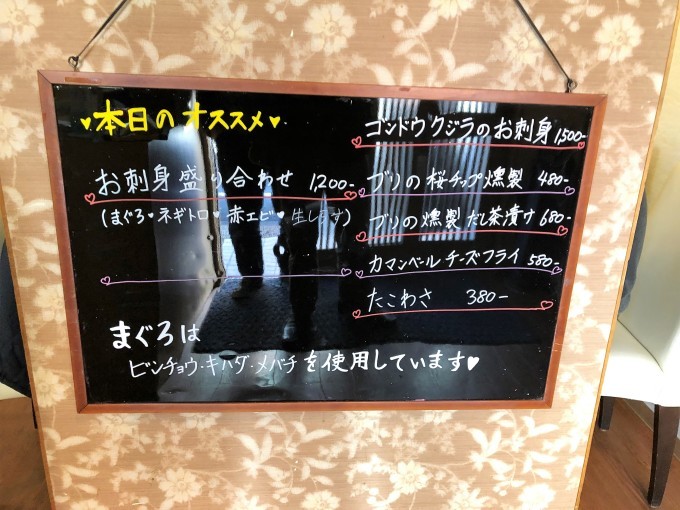 ♥本日のオススメ♥
お刺身盛り合わせ 1,200-
(まぐろ♥ネギトロ♥赤エビ♥生しらす)
まぐろは
ビンチョウ・キハダ・メバチを使用しています♥
ゴンドウクジラのお刺身 1,500-
ブリの桜チップ燻製 480-
ブリの燻製だし茶漬け 680-
カマンベールチーズフライ 580-
たこわさ 380-